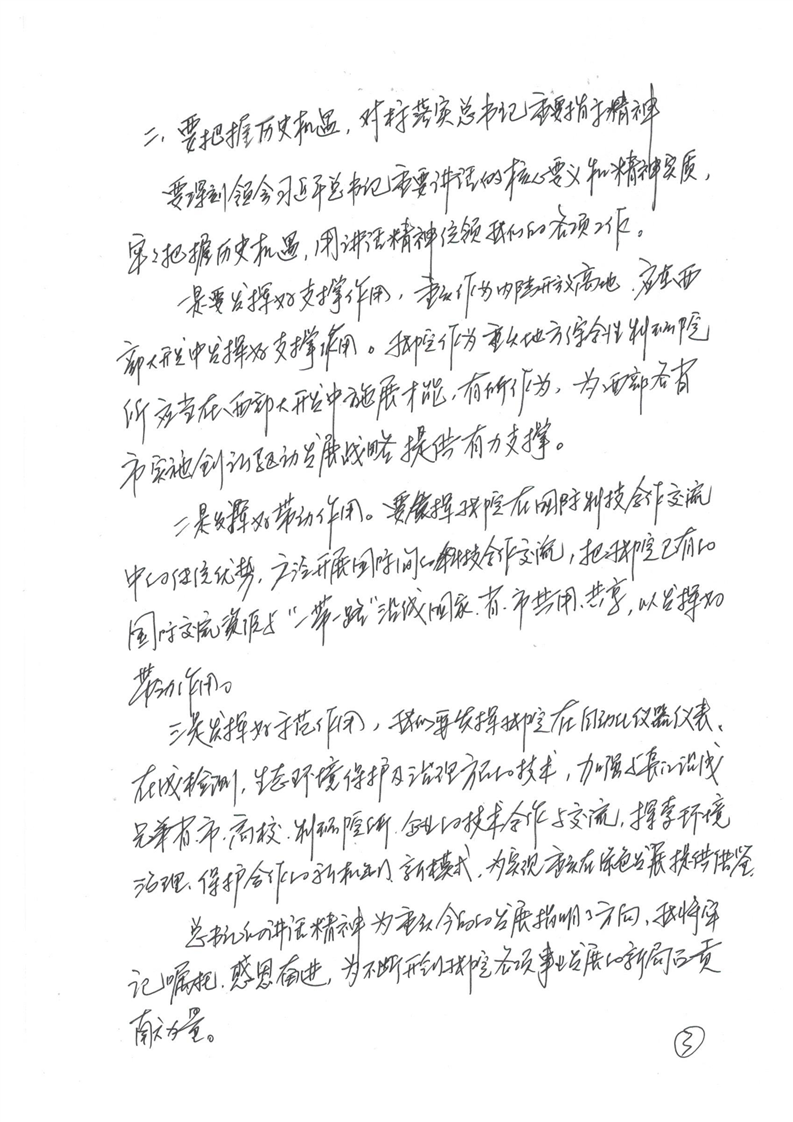 二、要把握历史机遇，对标落实总书记重要指示精神
要深刻领会习近平总书记重要讲话的核心要义和精神实质，
牢牢把握历史机遇，用讲话精神统领我们的各项工作。
一是要发挥好支撑作用，重庆作为内陆开放高地，应在西
部大开发中发挥好支撑作用。我院作为重庆地方综合性科研院
所应当在西部大开发中施展才能，有所作为，为西部各省
市实施创新驱动发展战略提供有力支撑。
二是发挥好带动作用。要发挥我院在国际科技合作交流
中的传统优势，广泛开展国际间的科技合作交流，把我院已有的
国际交流资源与“一带一路”沿线国家、省、市共用、共享，以发挥好
带动作用。
三是发挥好示范作用，我们要发挥我院在自动化仪器仪表、
在线检测，生态环境保护及治理方面的技术，加强与长江沿线
兄弟省、市、高校、科研院所、企业的技术合作与交流，探索环境
治理、保护合作的新机制、新模式，为实现重庆在绿色发展提供借鉴
总书记的讲话精神为重庆今后的发展指明了方向，我将牢
记嘱托、感恩奋进，为不断开创我院各项事业发展的新局面贡
献力量。
3